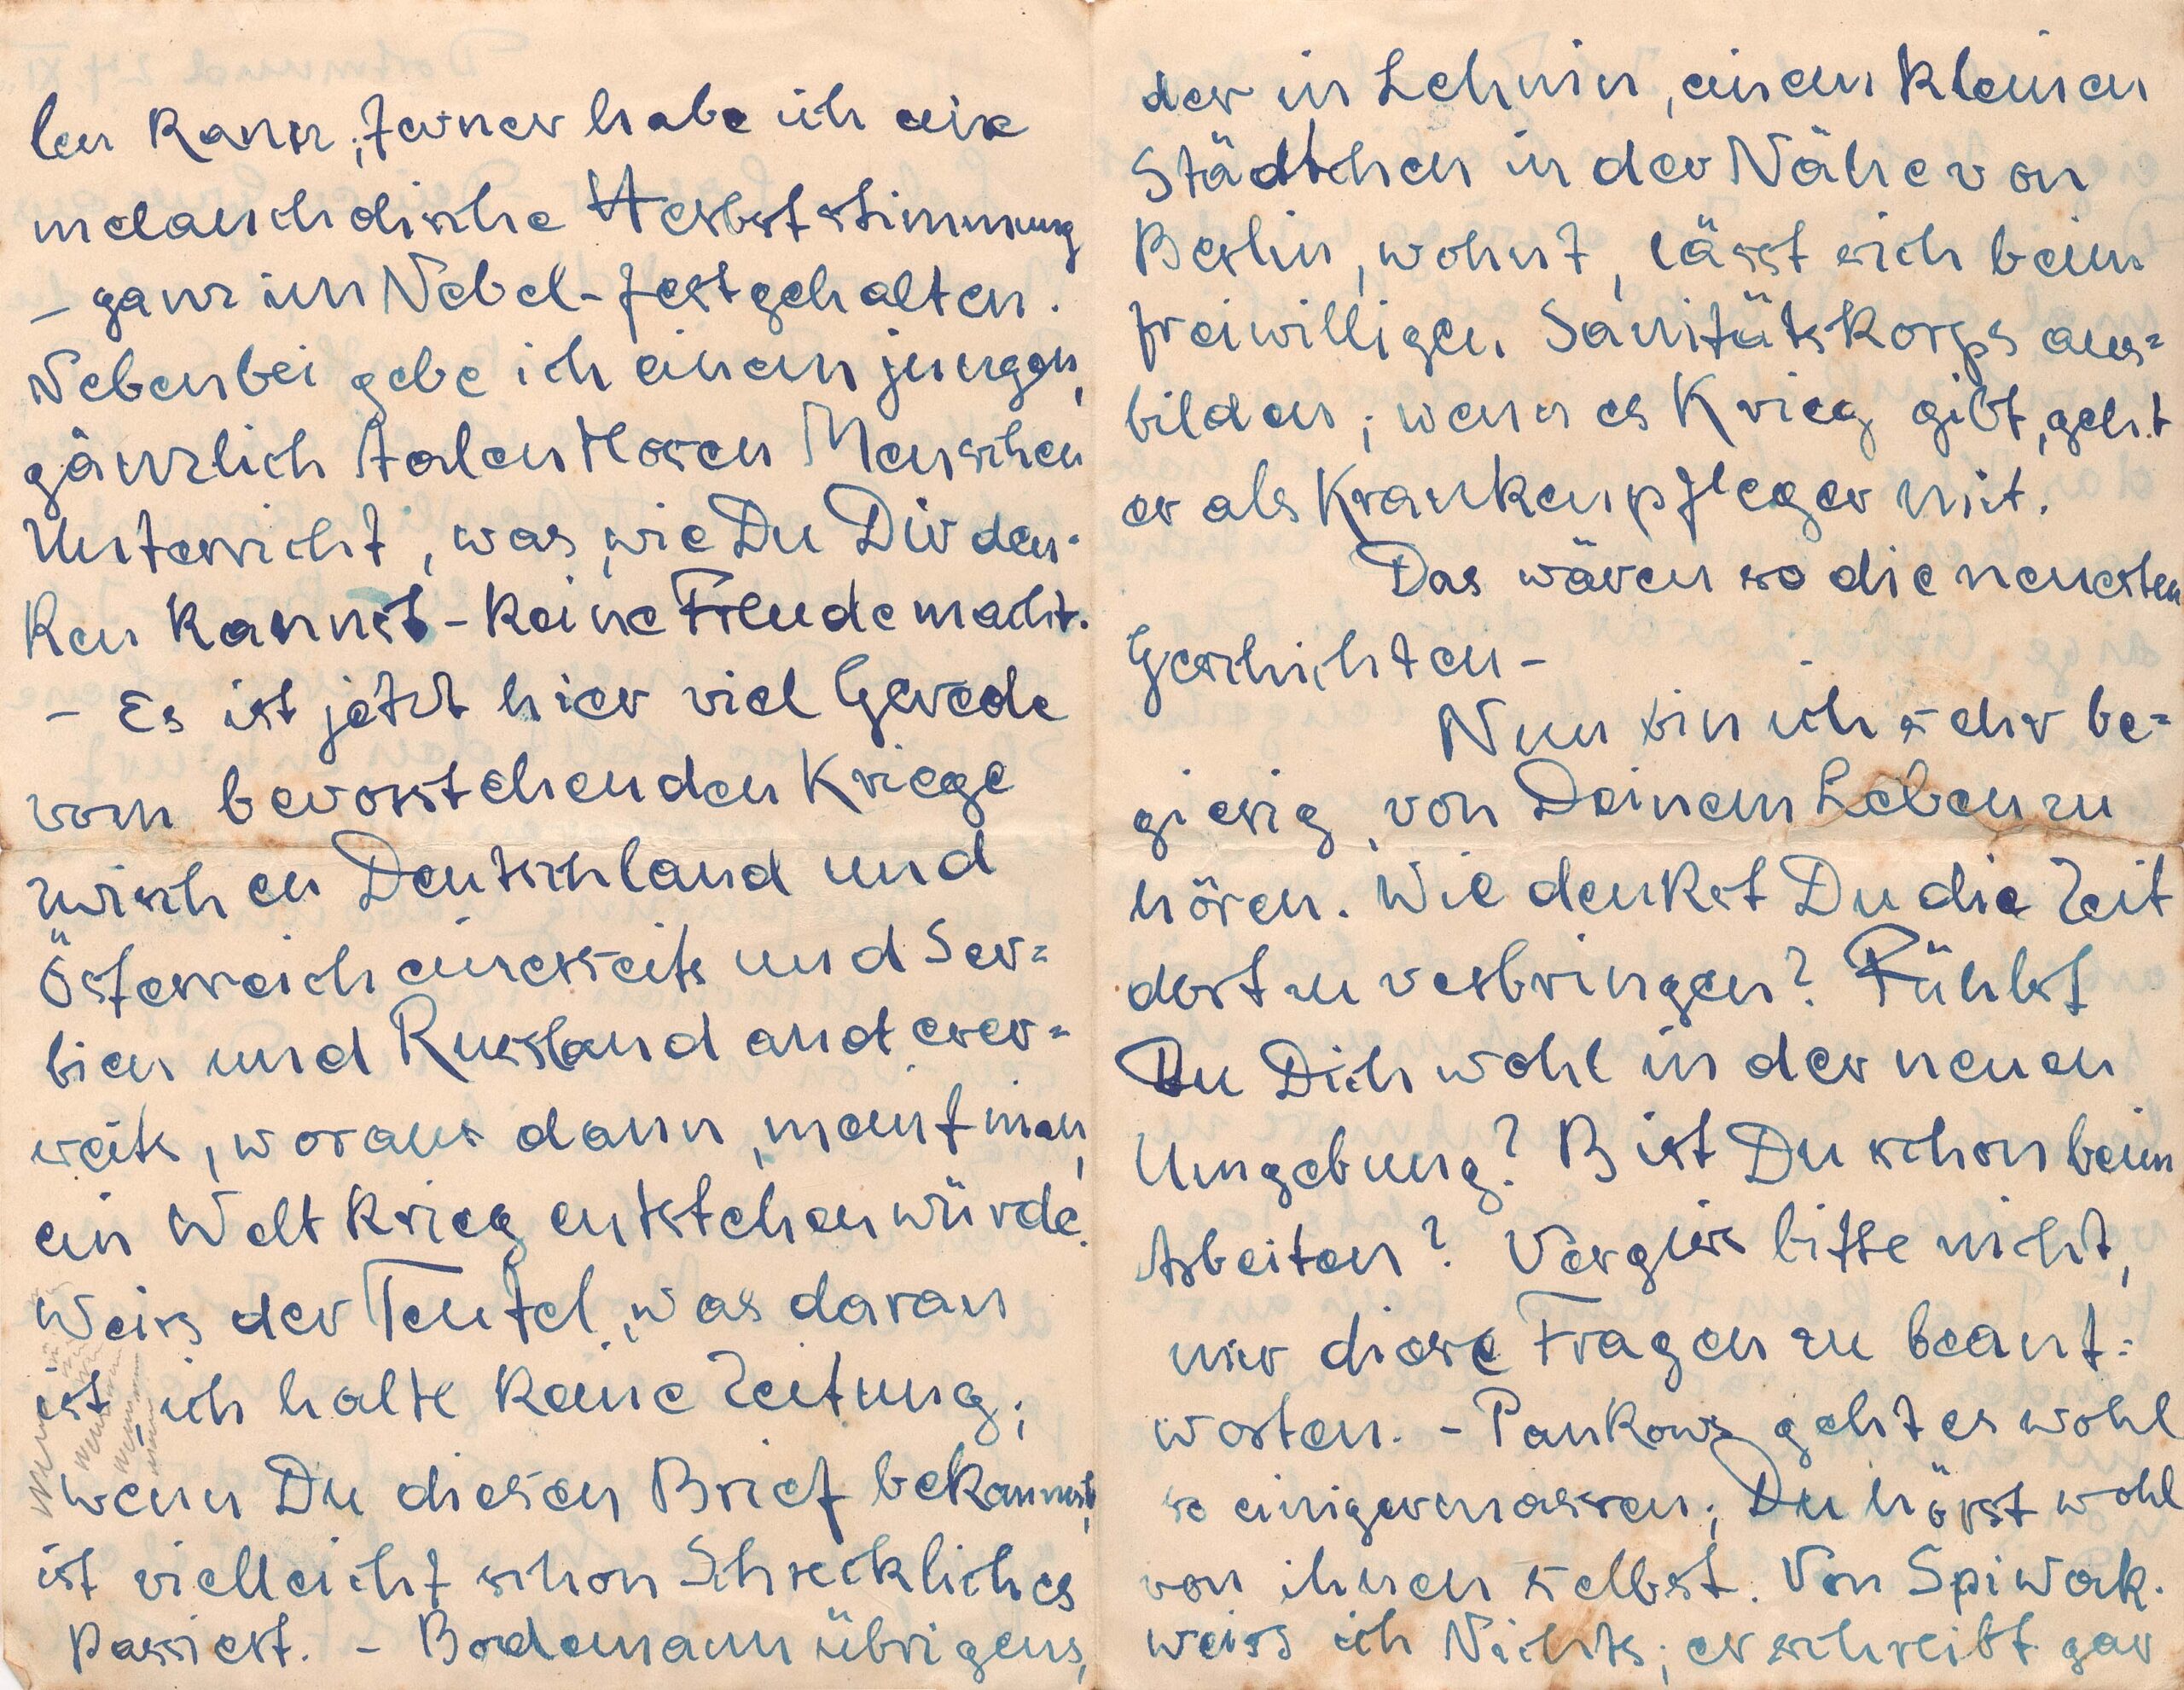 len kann; ferner habe ich eine
melancholische Herbststimmung
– ganz im Nebel – festgehalten.
Nebenbei gebe ich einem jungen,
gänzlich talentlosen Menschen
Unterricht, was, wie Du Dir den-
ken kannst – keine Freude macht.
– Es ist jetzt hier viel Gerede
vom bevorstehenden Kriege
zwischen Deutschland und
Österreich einerseits und Ser=
bien und Russland anderer=
seits, woraus dann, meint man,
ein Weltkrieg entstehen würde.
Weiss der Teufel, was daran
ist, ich halte keine Zeitung;
wenn Du diesen Brief bekommst,
ist vielleicht schon Schreckliches
passiert. – Bodemann übrigens,
der in Lehnin, einem kleinen
Städtchen in der Nähe von
Berlin, wohnt, lässt sich beim
freiwilligen Sanitätskorps aus=
bilden; wenn es Krieg gibt, geht
er als Krankenpfleger mit.
Das wären so die neuesten
Geschichten –
Nun bin ich sehr be=
gierig, von Deinem Leben zu
hören. Wie denkst Du die Zeit
dort zu verbringen? Fühlst
Du Dich wohl in der neuen
Umgebung? Bist Du schon beim
Arbeiten? Vergiss bitte nicht,
mir diese Fragen zu beant=
worten. – Pankows geht es wohl
so einigermassen; Du hörst wohl
von ihnen selbst. Von Spiwak
weiss ich Nichts; er schreibt gar